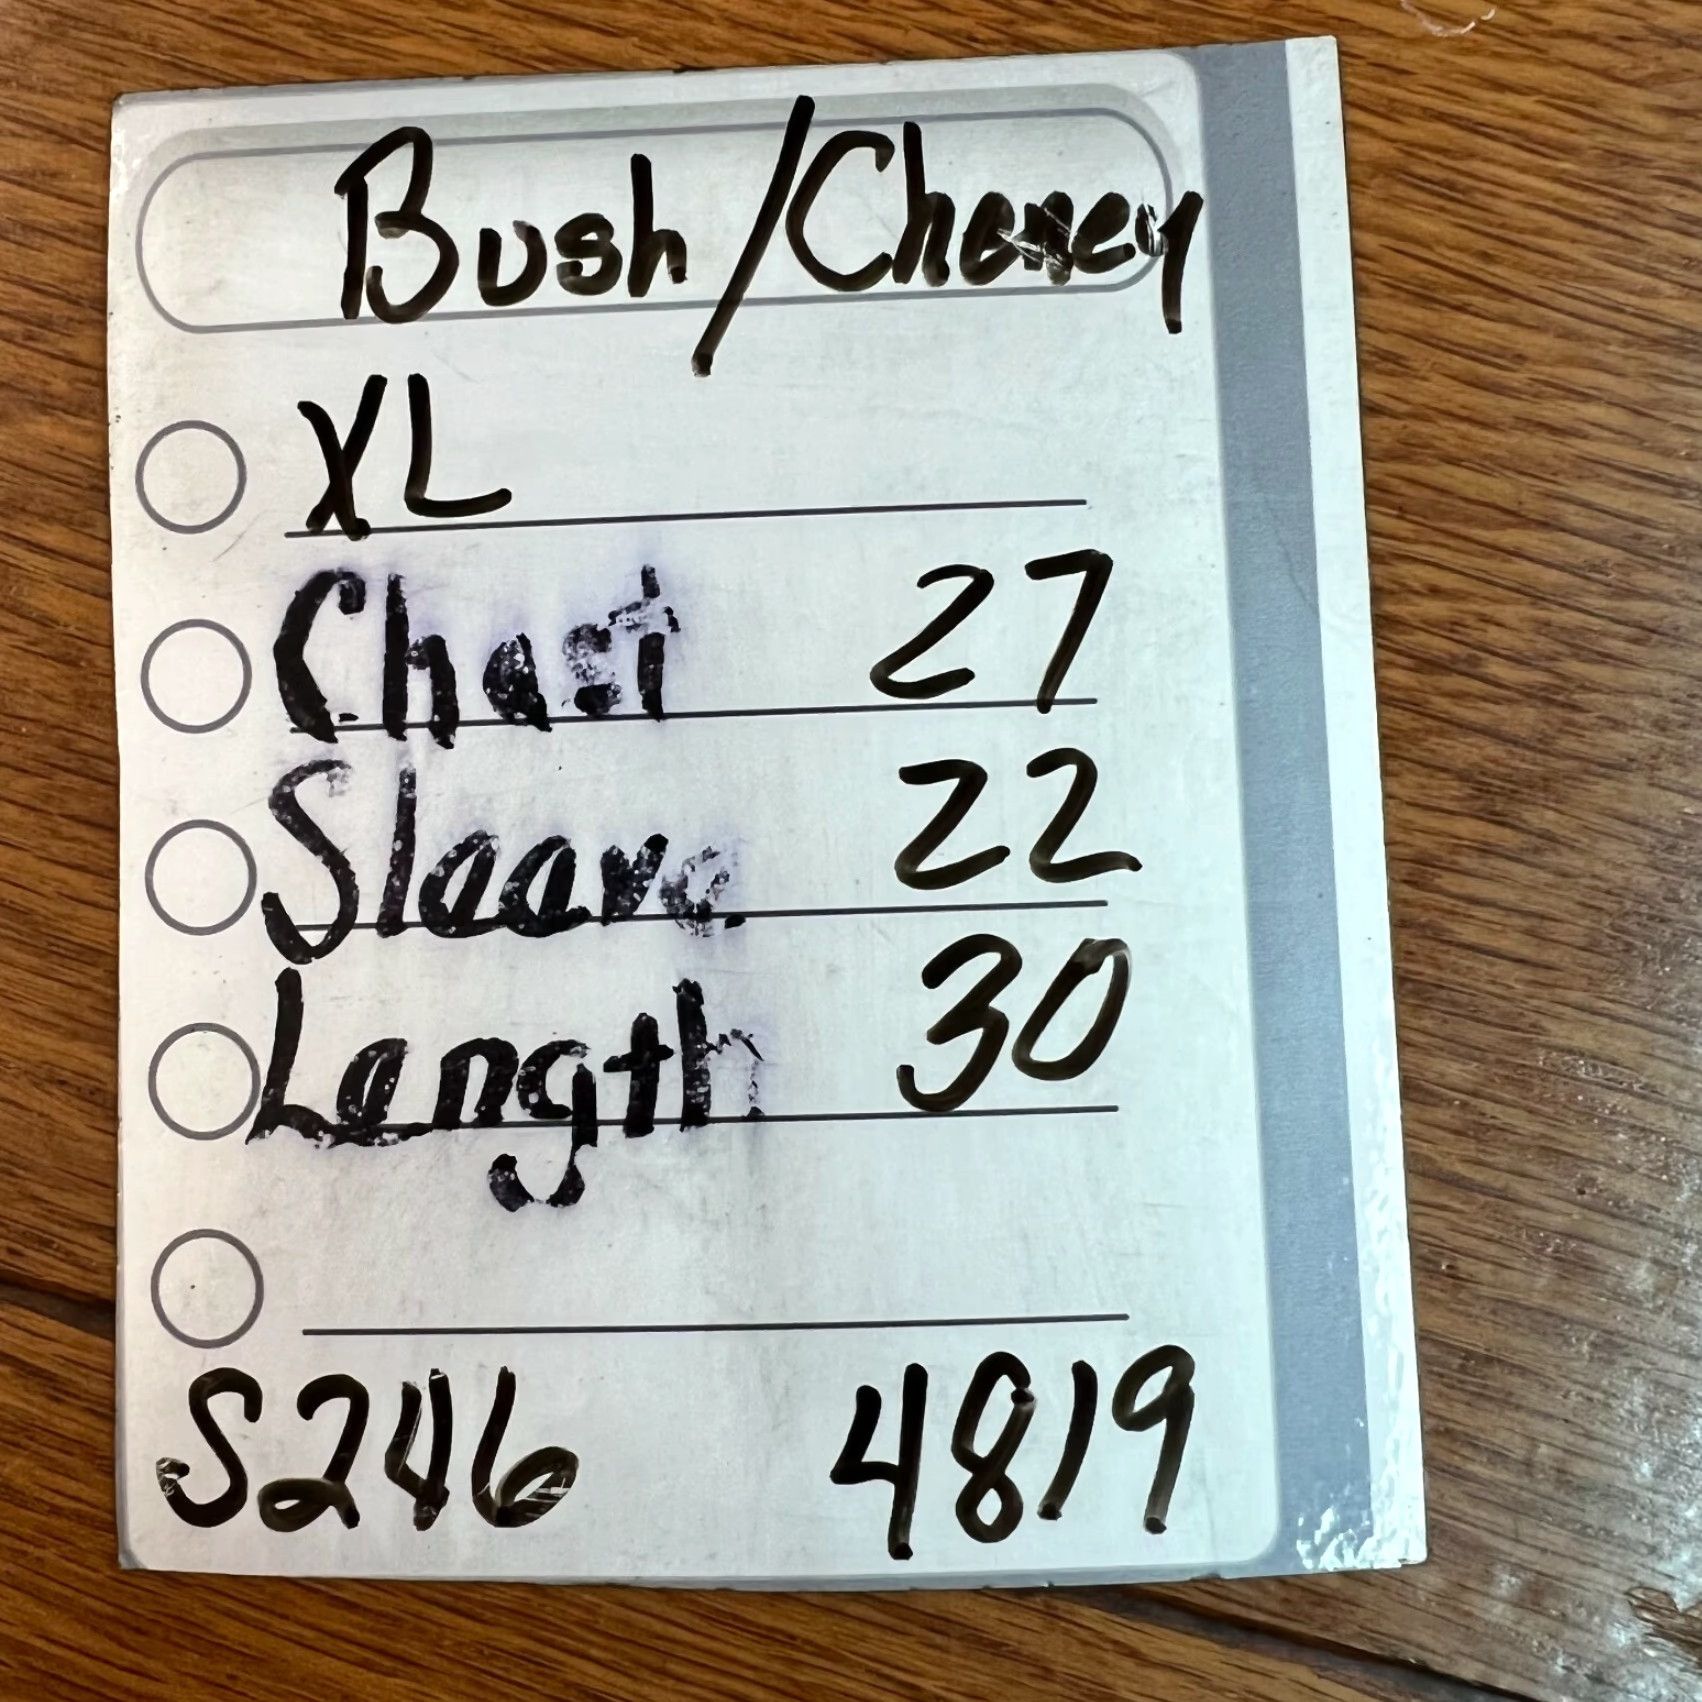 Bush/Cheney
XL
Chest 27
Sleeve 22
Length 30
S246 4819